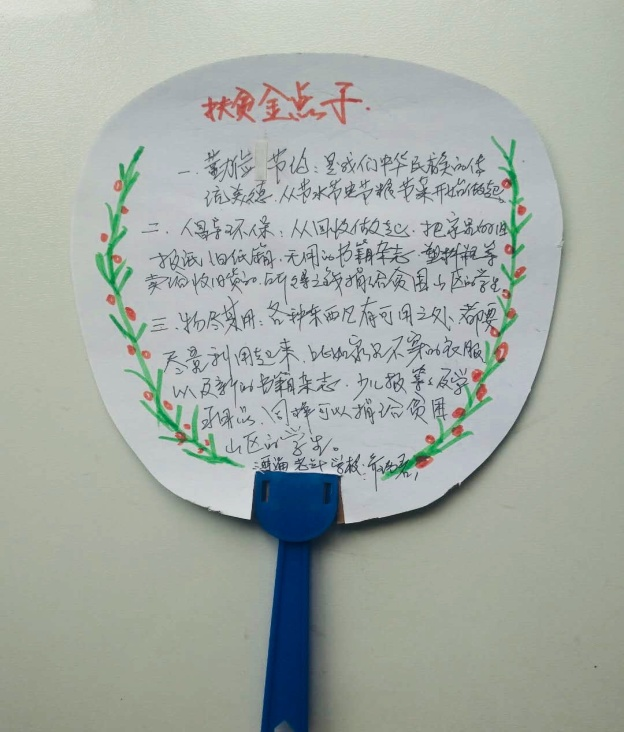 扶贫金点子.
一.勤俭节约:是我们中华民族的传
统美德.从节水节电节粮节菜开始做起.
二.倡导环保:从回收做起.把家里的旧
报纸、旧纸箱.无用的书籍杂志.塑料瓶等
卖给收旧货的.所得之钱捐给贫困山区的学生.
三.物尽其用:各种东西凡有可用之处、都要
尽量利用起来.比如家里不穿的衣服
以及新的书籍杂志.少儿报等以及学
习用品.同样可以捐给贫困
山区的学生。
老年学校: